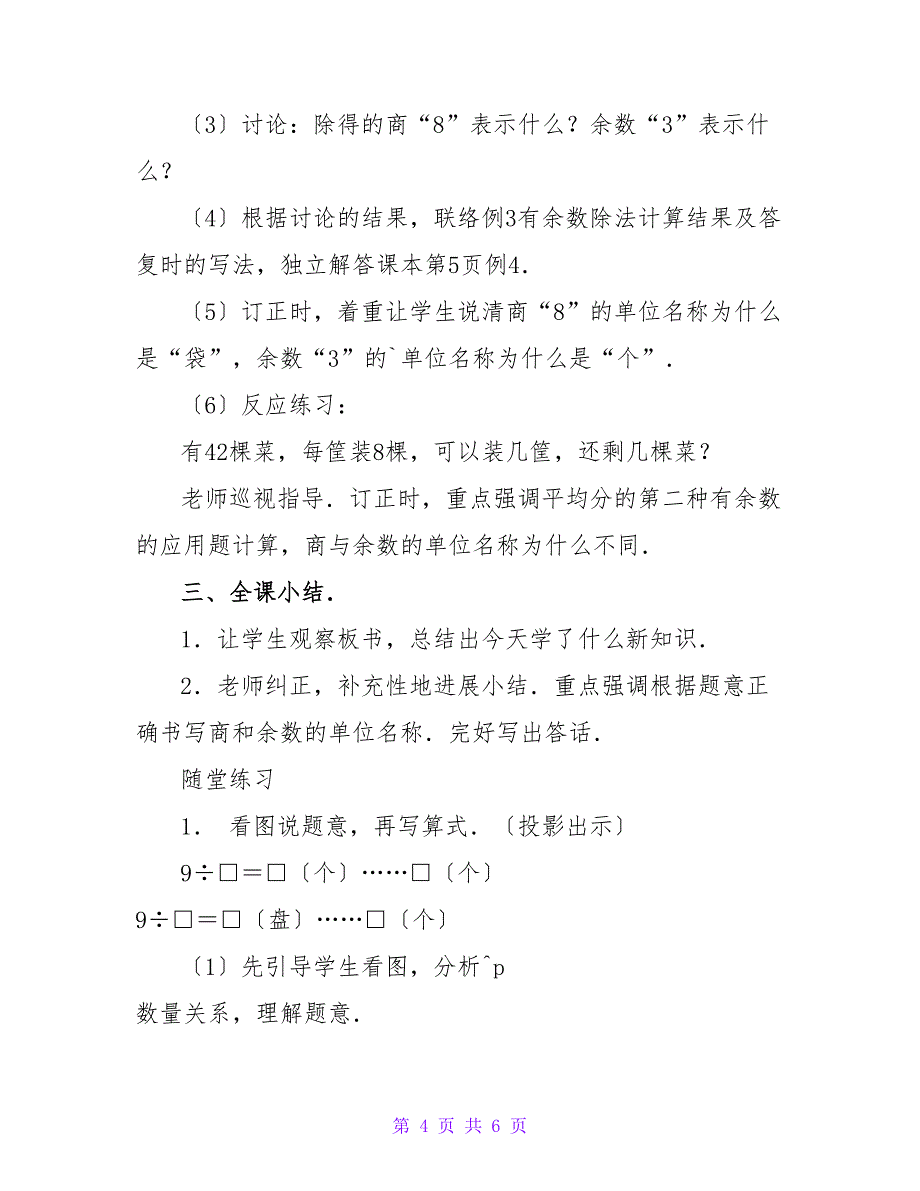 〔3〕讨论：除得的商“8”表示什么？余数“3”表示什
么？
〔4〕根据讨论的结果，联络例3有余数除法计算结果及答
复时的写法，独立解答课本第5页例4．
〔5〕订正时，着重让学生说清商“8”的单位名称为什么
是“袋”，余数“3”的`单位名称为什么是“个”．
〔6〕反应练习：
有42棵菜，每筐装8棵，可以装几筐，还剩几棵菜？
老师巡视指导．订正时，重点强调平均分的第二种有余数
的应用题计算，商与余数的单位名称为什么不同．
三、全课小结．
1．让学生观察板书，总结出今天学了什么新知识．
2．老师纠正，补充性地进展小结．重点强调根据题意正
确书写商和余数的单位名称．完好写出答话．
随堂练习
1． 看图说题意，再写算式．〔投影出示〕
9÷□＝□〔个〕……□〔个〕
9÷□＝□〔盘〕……□〔个〕
〔1〕先引导学生看图，分析^p
数量关系，理解题意．
第 4 页 共 6 页